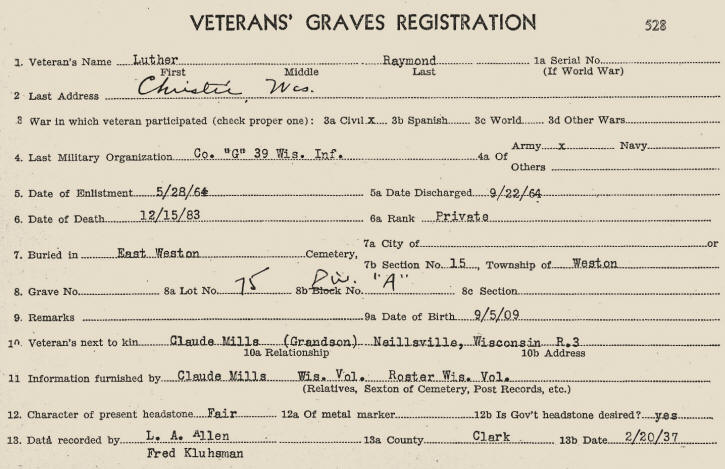 VETERANS' GRAVES REGISTRATION 528
1. Veteran's Name Luther Raymond 1a Serial No.
First Middle Last (If World War)
2 Last Address Christie, Wis.
3 War in which veteran participated (check proper one): 3a Civil x 3b Spanish 3c World 3d Other Wars
4. Last Military Organization Co. "G" 39 Wis. Inf. 4a Of Army x Navy
Others
5. Date of Enlistment 5/28/64 5a Date Discharged 9/22/64
6. Date of Death 12/15/83 6a Rank Private
7. Buried in East Weston Cemetery, 7a City of or
7b Section No. 15, Township of Weston
8. Grave No. 8a Lot No. 75 8b Block No. Div. "A" 8c Section
9. Remarks 9a Date of Birth 9/5/09
10. Veteran's next to kin Claude Mills (Grandson) Neillsville, Wisconsin R.3
10a Relationship 10b Address
11 Information furnished by Claude Mills Wis. Vol. Roster Wis. Vol.
(Relatives, Sexton of Cemetery, Post Records, etc.)
12. Character of present headstone Fair 12a Of metal marker 12b Is Gov't headstone desired? yes
13. Data recorded by L. A. Allen 13a County Clark 13b Date 2/20/37
Fred Kluhsman